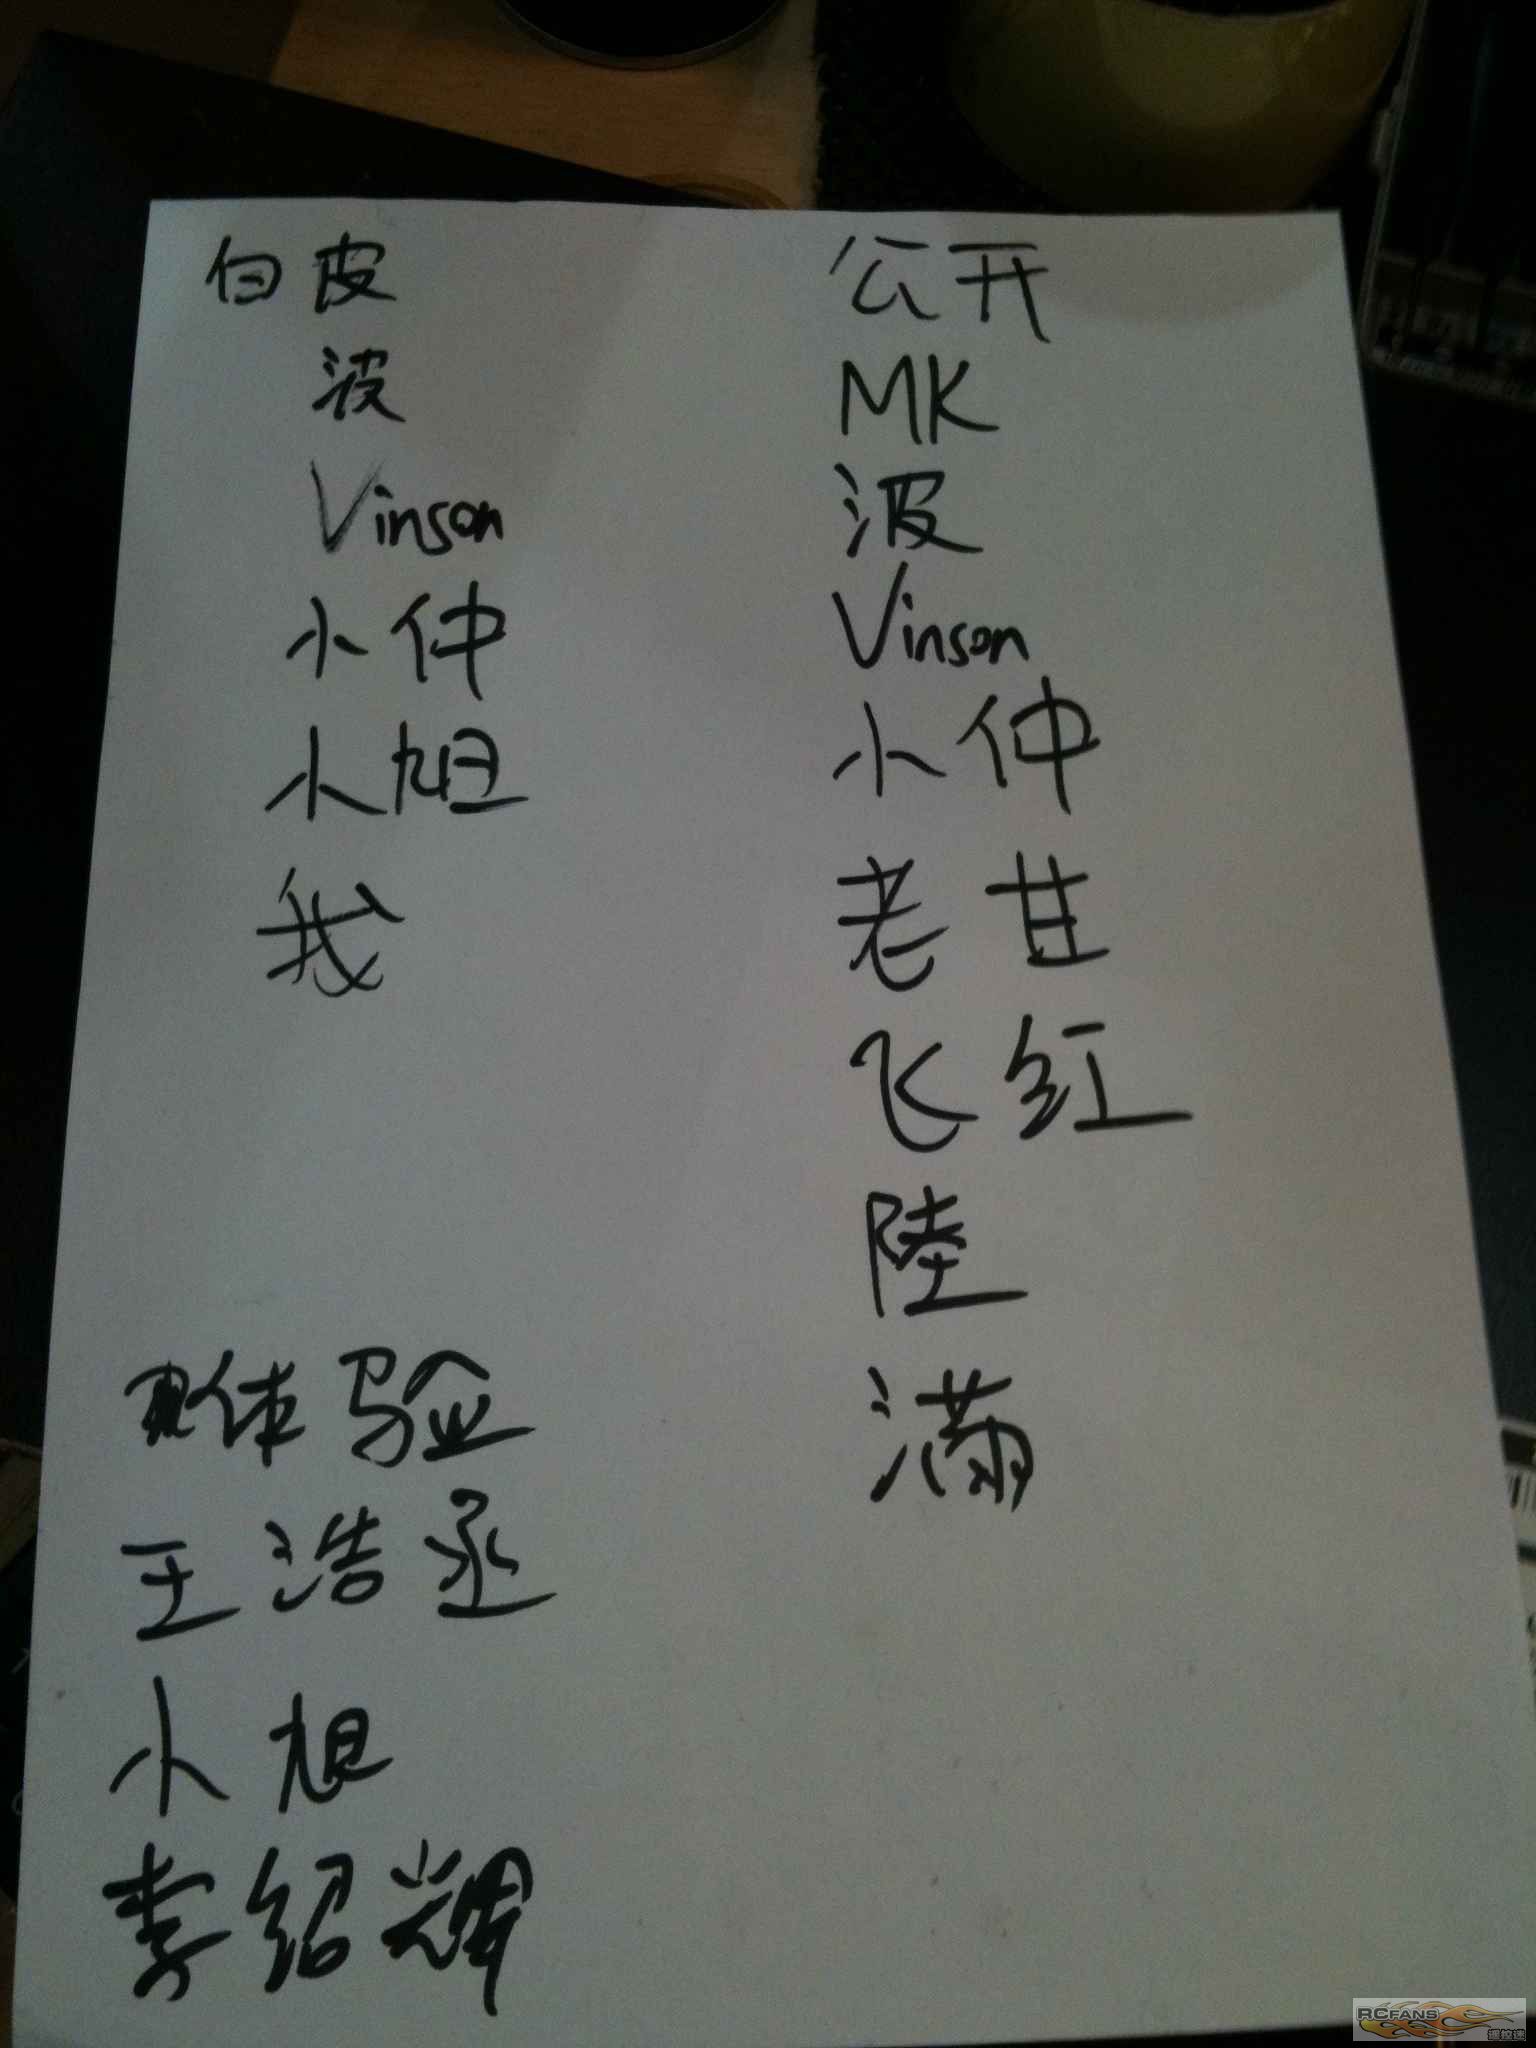 白皮
波
Vinson
小仲
小旭
我
体验
王浩丞
小旭
李绍辉
公开
MK
波
Vinson
小仲
老甘
飞红
陸
满
RCFANS
遥控迷